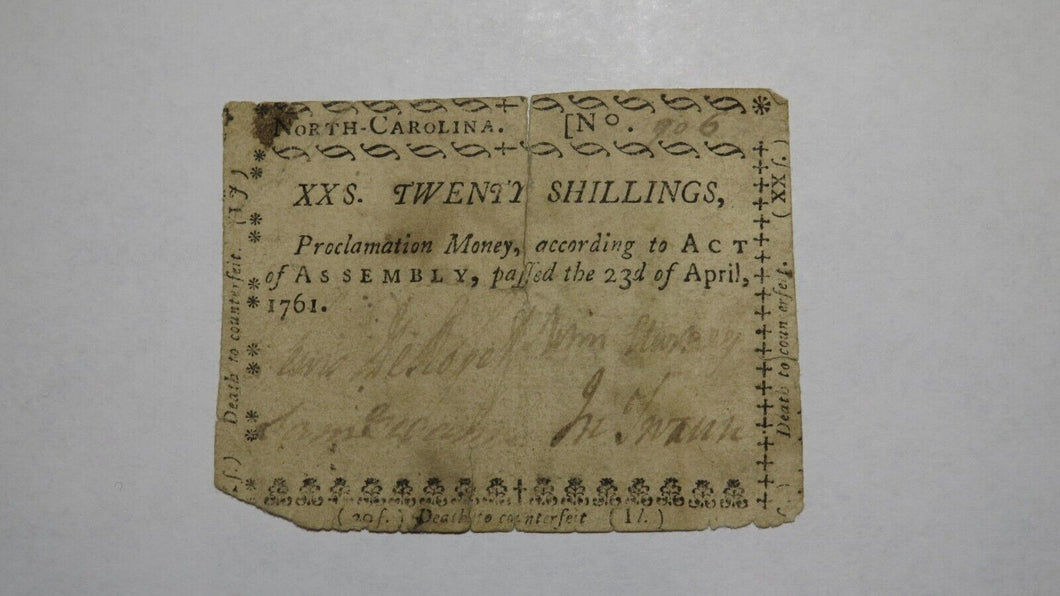 NORTH-CAROLINA. [No. 906
XXS. TWENTY SHILLINGS,
Proclamation Money, according to ACT
of ASSEMBLY, paſſed the 23d of April,
1761.
John Starkey
Jn. Swann
(20ſ.) Death to counterfeit (1l.)
Death to counterfeit.
Death to counterfeit. (XXſ.)